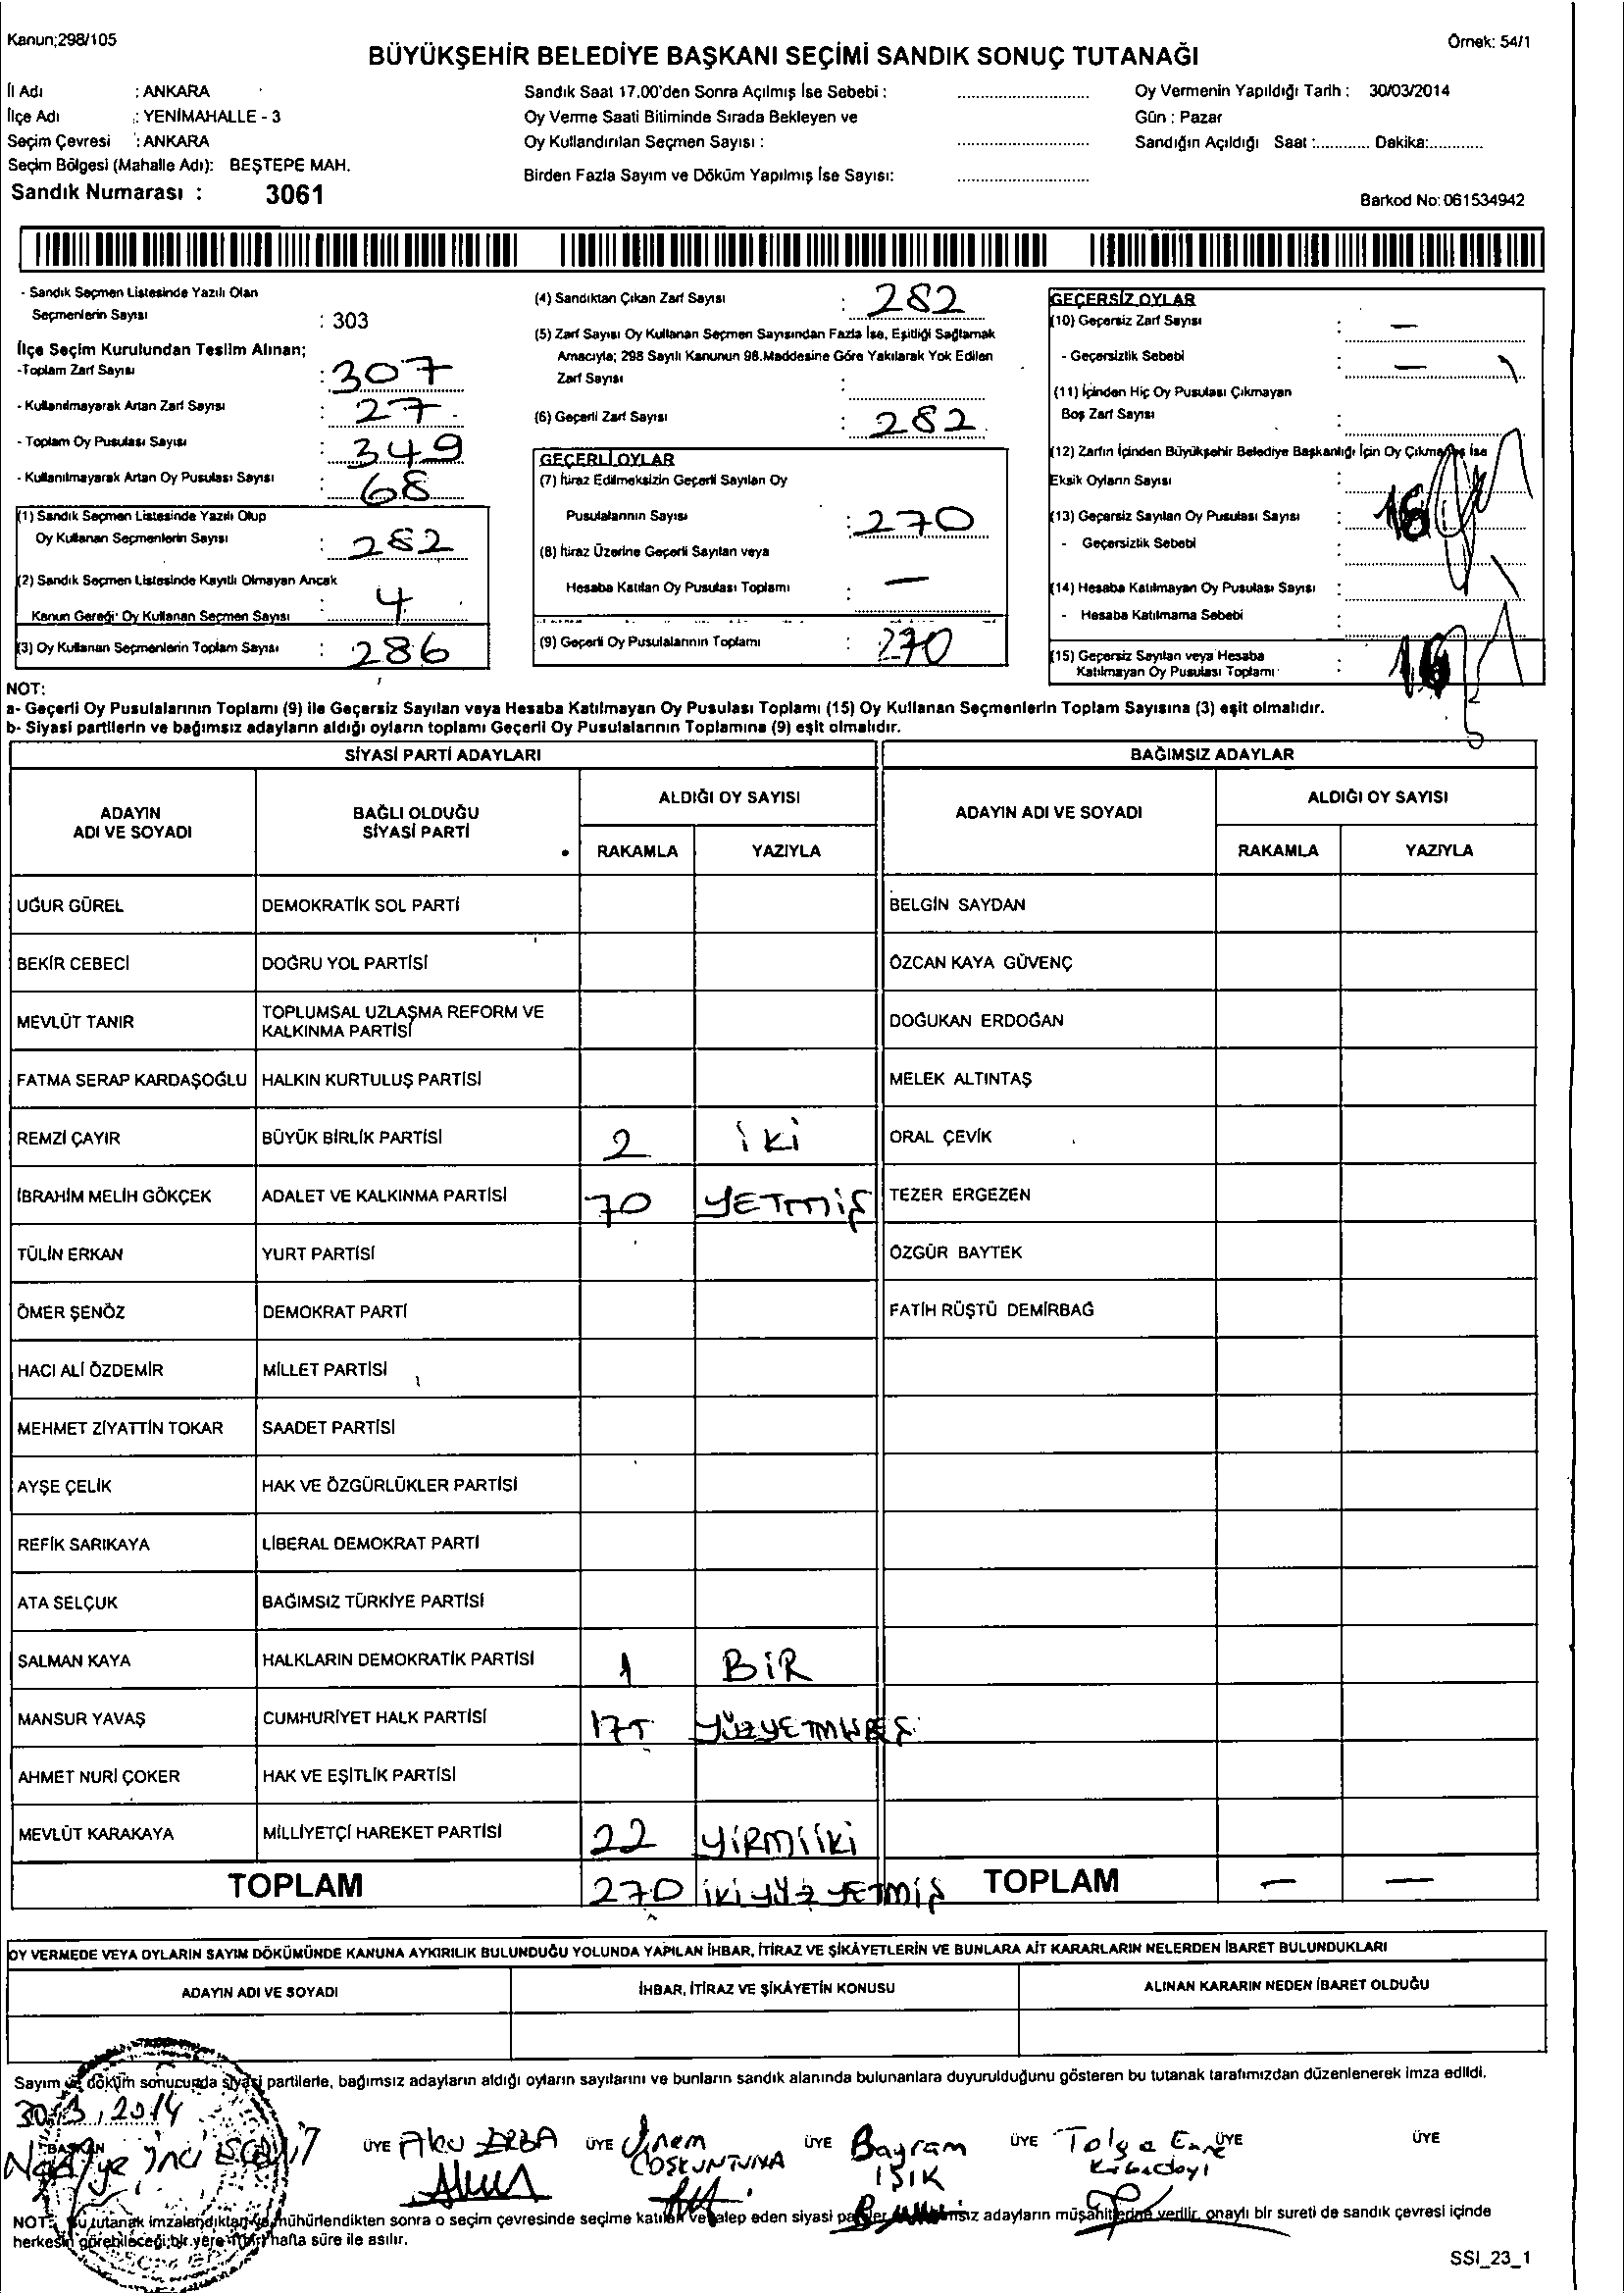 Kanun;298/105
Örnek: 54/1
BÜYÜKŞEHİR BELEDİYE BAŞKANI SEÇİMİ SANDIK SONUÇ TUTANAĞI
İl Adı : ANKARA
İlçe Adı : YENİMAHALLE - 3
Seçim Çevresi : ANKARA
Seçim Bölgesi (Mahalle Adı): BEŞTEPE MAH.
Sandık Numarası : 3061
Sandık Saat 17.00'den Sonra Açılmış İse Sebebi :
Oy Verme Saati Bitiminde Sırada Bekleyen ve
Oy Kullandırılan Seçmen Sayısı :
Birden Fazla Sayım ve Döküm Yapılmış İse Sayısı:
Oy Vermenin Yapıldığı Tarih : 30/03/2014
Gün : Pazar
Sandığın Açıldığı Saat :............ Dakika:............
Barkod No: 061534942
- Sandık Seçmen Listesinde Yazılı Olan
Seçmenlerin Sayısı : 303
İlçe Seçim Kurulundan Teslim Alınan;
-Toplam Zarf Sayısı : 307
- Kullanılmayarak Artan Zarf Sayısı : 27
- Toplam Oy Pusulası Sayısı : 349
- Kullanılmayarak Artan Oy Pusulası Sayısı : 68
(1) Sandık Seçmen Listesinde Yazılı Olup
Oy Kullanan Seçmenlerin Sayısı : 282
(2) Sandık Seçmen Listesinde Kayıtlı Olmayan Ancak
Kanun Gereği Oy Kullanan Seçmen Sayısı : 4
(3) Oy Kullanan Seçmenlerin Toplam Sayısı : 286
(4) Sandıktan Çıkan Zarf Sayısı : 282
(5) Zarf Sayısı Oy Kullanan Seçmen Sayısından Fazla İse, Eşitliği Sağlamak
Amacıyla; 298 Sayılı Kanunun 98.Maddesine Göre Yakılarak Yok Edilen
Zarf Sayısı :
(6) Geçerli Zarf Sayısı : 282
GEÇERLİ OYLAR
(7) İtiraz Edilmeksizin Geçerli Sayılan Oy
Pusulalarının Sayısı : 270
(8) İtiraz Üzerine Geçerli Sayılan veya
Hesaba Katılan Oy Pusulası Toplamı : —
(9) Geçerli Oy Pusulalarının Toplamı : 270
GEÇERSİZ OYLAR
(10) Geçersiz Zarf Sayısı : —
- Geçersizlik Sebebi : —
(11) İçinden Hiç Oy Pusulası Çıkmayan
Boş Zarf Sayısı :
(12) Zarfın İçinden Büyükşehir Belediye Başkanlığı İçin Oy Çıkmamış İse
Eksik Oyların Sayısı :
(13) Geçersiz Sayılan Oy Pusulası Sayısı : 16
- Geçersizlik Sebebi :
(14) Hesaba Katılmayan Oy Pusulası Sayısı :
- Hesaba Katılmama Sebebi :
(15) Geçersiz Sayılan veya Hesaba
Katılmayan Oy Pusulası Toplamı : 16
NOT:
a- Geçerli Oy Pusulalarının Toplamı (9) ile Geçersiz Sayılan veya Hesaba Katılmayan Oy Pusulası Toplamı (15) Oy Kullanan Seçmenlerin Toplam Sayısına (3) eşit olmalıdır.
b- Siyasi partilerin ve bağımsız adayların aldığı oyların toplamı Geçerli Oy Pusulalarının Toplamına (9) eşit olmalıdır.
SİYASİ PARTİ ADAYLARI BAĞIMSIZ ADAYLAR
ADAYIN ADI VE SOYADI BAĞLI OLDUĞU SİYASİ PARTİ ALDIĞI OY SAYISI ADAYIN ADI VE SOYADI ALDIĞI OY SAYISI
RAKAMLA YAZIYLA RAKAMLA YAZIYLA
UĞUR GÜREL DEMOKRATİK SOL PARTİ BELGİN SAYDAN
BEKİR CEBECİ DOĞRU YOL PARTİSİ ÖZCAN KAYA GÜVENÇ
MEVLÜT TANIR TOPLUMSAL UZLAŞMA REFORM VE KALKINMA PARTİSİ DOĞUKAN ERDOĞAN
FATMA SERAP KARDAŞOĞLU HALKIN KURTULUŞ PARTİSİ MELEK ALTINTAŞ
REMZİ ÇAYIR BÜYÜK BİRLİK PARTİSİ 2 iKi ORAL ÇEVİK
İBRAHİM MELİH GÖKÇEK ADALET VE KALKINMA PARTİSİ 70 YETMİŞ TEZER ERGEZEN
TÜLİN ERKAN YURT PARTİSİ ÖZGÜR BAYTEK
ÖMER ŞENÖZ DEMOKRAT PARTİ FATİH RÜŞTÜ DEMİRBAĞ
HACI ALİ ÖZDEMİR MİLLET PARTİSİ
MEHMET ZİYATTİN TOKAR SAADET PARTİSİ
AYŞE ÇELİK HAK VE ÖZGÜRLÜKLER PARTİSİ
REFİK SARIKAYA LİBERAL DEMOKRAT PARTİ
ATA SELÇUK BAĞIMSIZ TÜRKİYE PARTİSİ
SALMAN KAYA HALKLARIN DEMOKRATİK PARTİSİ 1 BİR
MANSUR YAVAŞ CUMHURİYET HALK PARTİSİ 175 YÜZYETMİŞBEŞ
AHMET NURİ ÇOKER HAK VE EŞİTLİK PARTİSİ
MEVLÜT KARAKAYA MİLLİYETÇİ HAREKET PARTİSİ 22 YİRMİİKİ
TOPLAM 270 İKİYÜZYETMİŞ TOPLAM — —
OY VERMEDE VEYA OYLARIN SAYIM DÖKÜMÜNDE KANUNA AYKIRILIK BULUNDUĞU YOLUNDA YAPILAN İHBAR, İTİRAZ VE ŞİKÂYETLERİN VE BUNLARA AİT KARARLARIN NELERDEN İBARET BULUNDUKLARI
ADAYIN ADI VE SOYADI İHBAR, İTİRAZ VE ŞİKÂYETİN KONUSU ALINAN KARARIN NEDEN İBARET OLDUĞU
Sayım ve döküm sonucunda siyasi partilerle, bağımsız adayların aldığı oyların sayılarını ve bunların sandık alanında bulunanlara duyurulduğunu gösteren bu tutanak tarafımızdan düzenlenerek imza edildi.
30/3/2014
BAŞKAN ÜYE ÜYE ÜYE Bayram IŞIK ÜYE Tolga ÜYE ÜYE
COŞKUNTUNA
NOT: Bu tutanak imzalandıktan ve mühürlendikten sonra o seçim çevresinde seçime katılan ve talep eden siyasi partiler bağımsız adayların müşahitlerine verilir, onaylı bir sureti de sandık çevresi içinde
herkesin görebileceği bir yere bir hafta süre ile asılır.
SSI_23_1